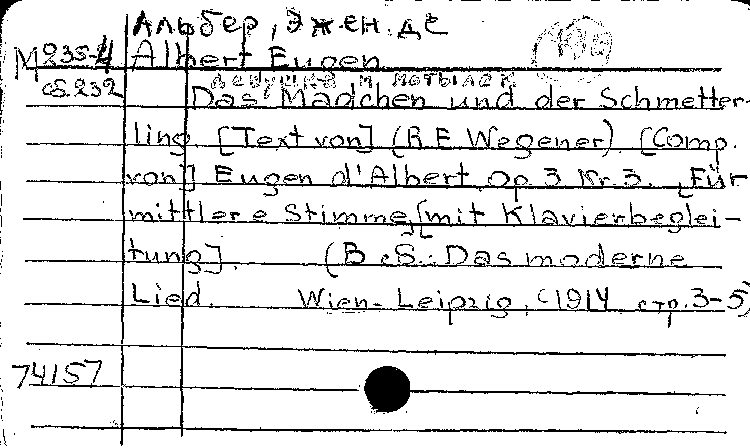 Альбер, Эжен де
М 235-4 Albert Eugen
сб.232 Девушка и мотылек
Das Mädchen und der Schmetter-
ling. [Text von] (R.E. Wegener). [Comp.
von] Eugen d'Albert. Op. 3 Nr. 3. Für
mittlere Stimme [mit Klavierbeglei-
tung]. (В сб.: Das moderne
Lied. Wien-Leipzig, c1914, стр. 3-5)
74157